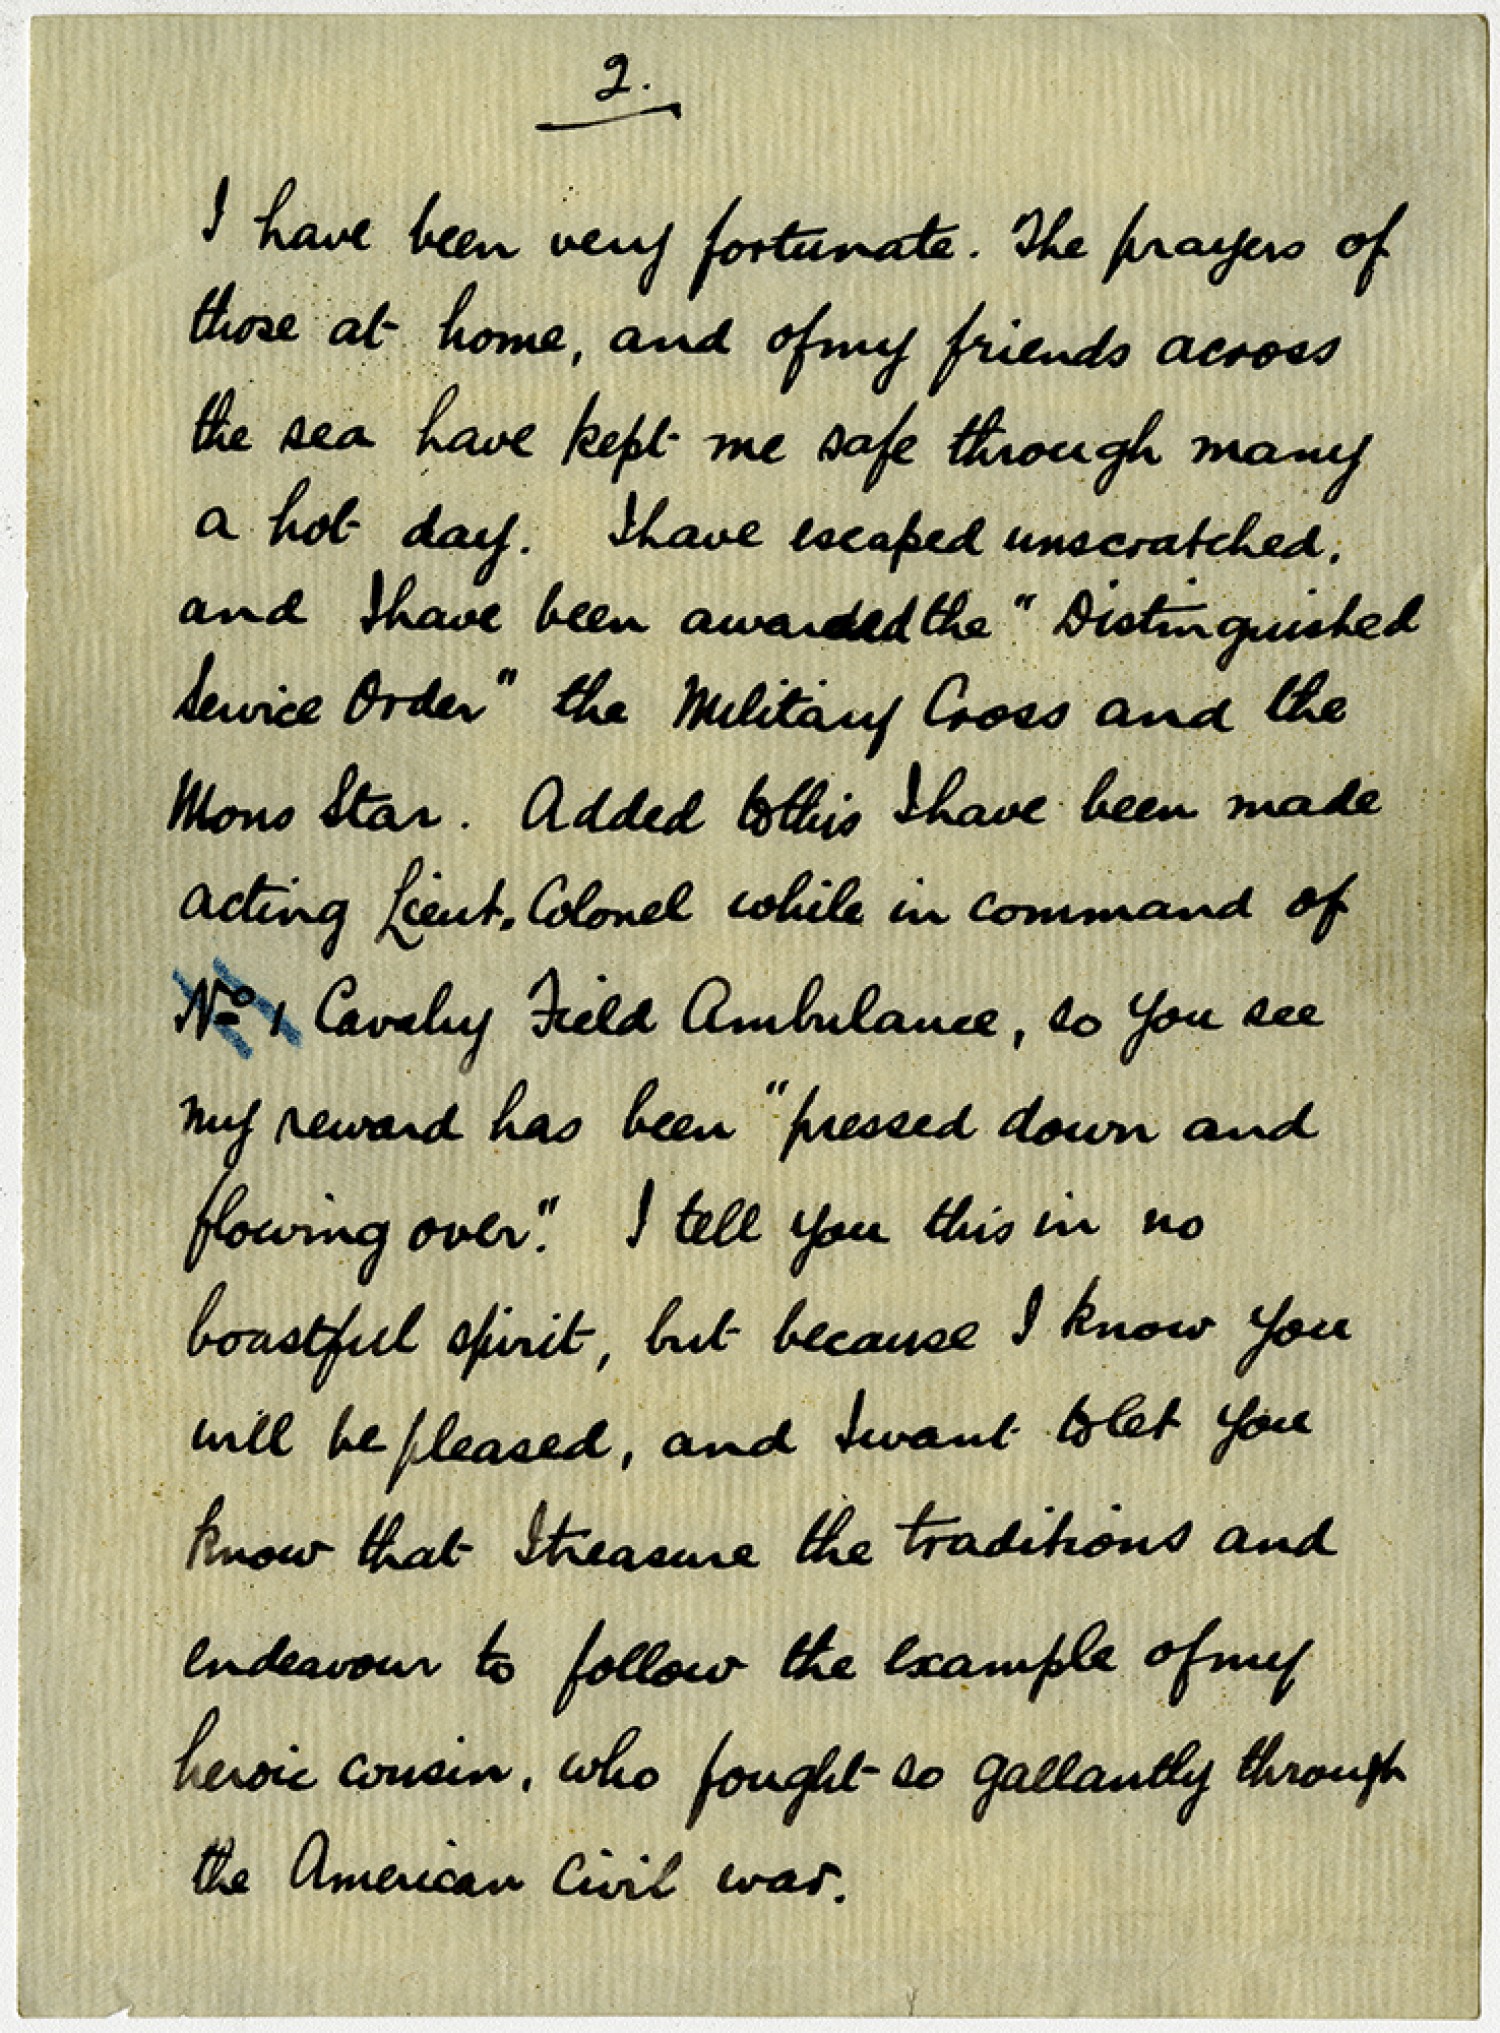 2.
I have been very fortunate. The prayers of
those at home, and of my friends across
the sea have kept me safe through many
a hot day. I have escaped unscratched,
and I have been awarded the "Distinguished
Service Order" the Military Cross and the
Mons Star. Added to this I have been made
acting Lieut. Colonel while in command of
No 1 Cavalry Field Ambulance, so you see
my reward has been "pressed down and
flowing over". I tell you this in no
boastful spirit, but because I know you
will be pleased, and I want to let you
know that I treasure the traditions and
endeavour to follow the example of my
heroic cousin, who fought so gallantly through
the American Civil war.